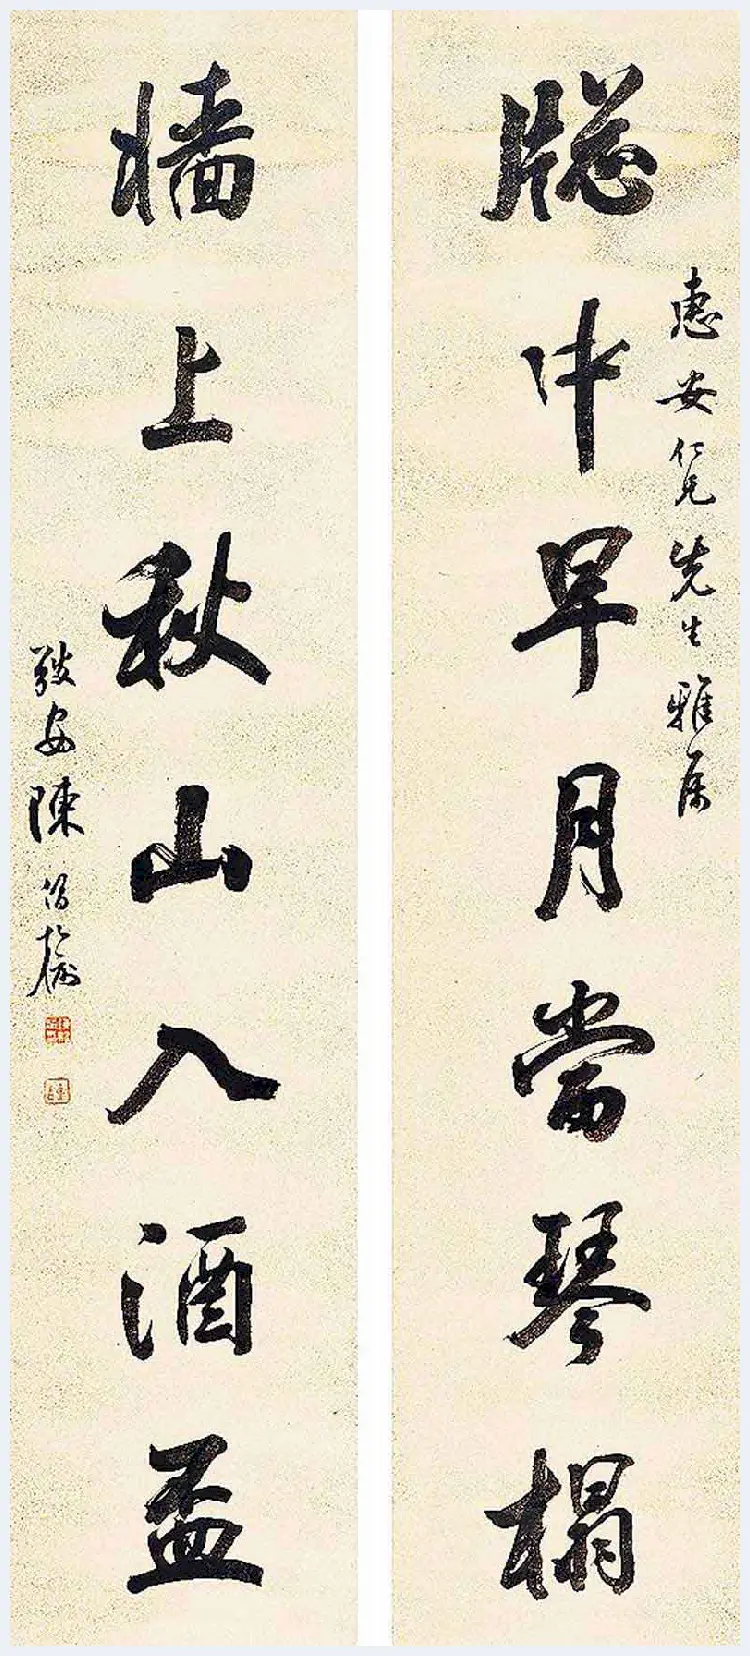 牕中早月當琴榻
惠安仁兄先生雅属
牆上秋山入酒盃
安陳